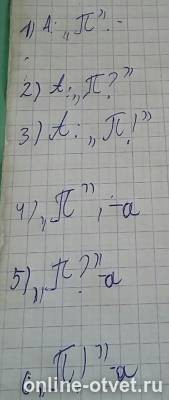 1) А: „П”. -
2) А: „П?”
3) А: „П!”
4) „П”, -а
5) „П?” -а
6) „П!” -а
online-otvet.ru